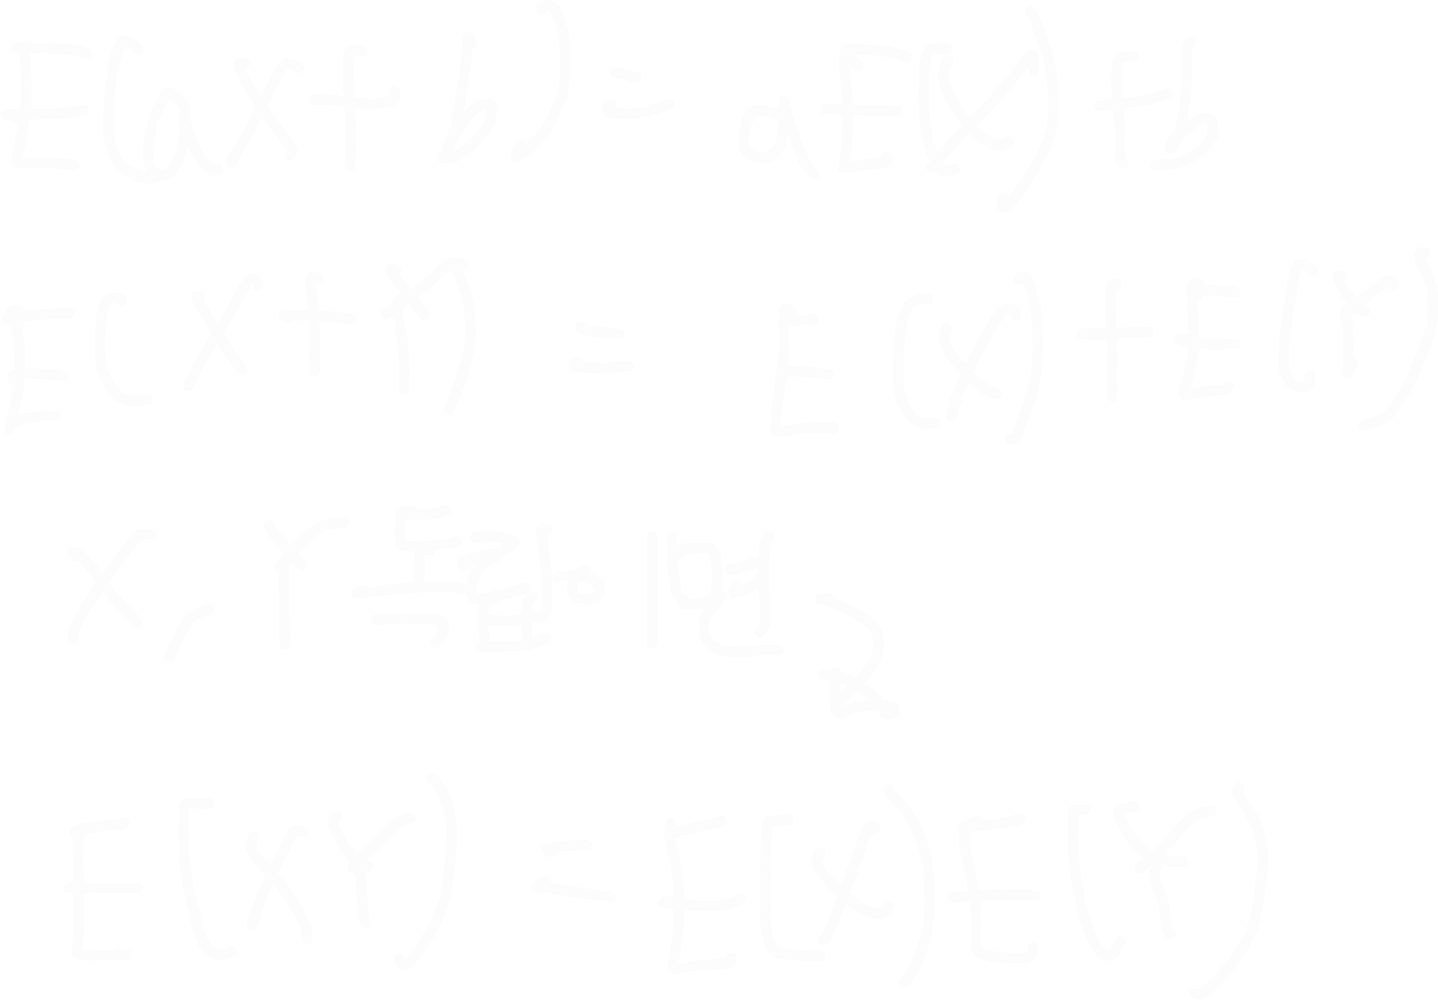 E(aX+b) = aE(X)+b
E(X+Y) = E(X)+E(Y)
X, Y 독립이면
E(XY) = E(X)E(Y)